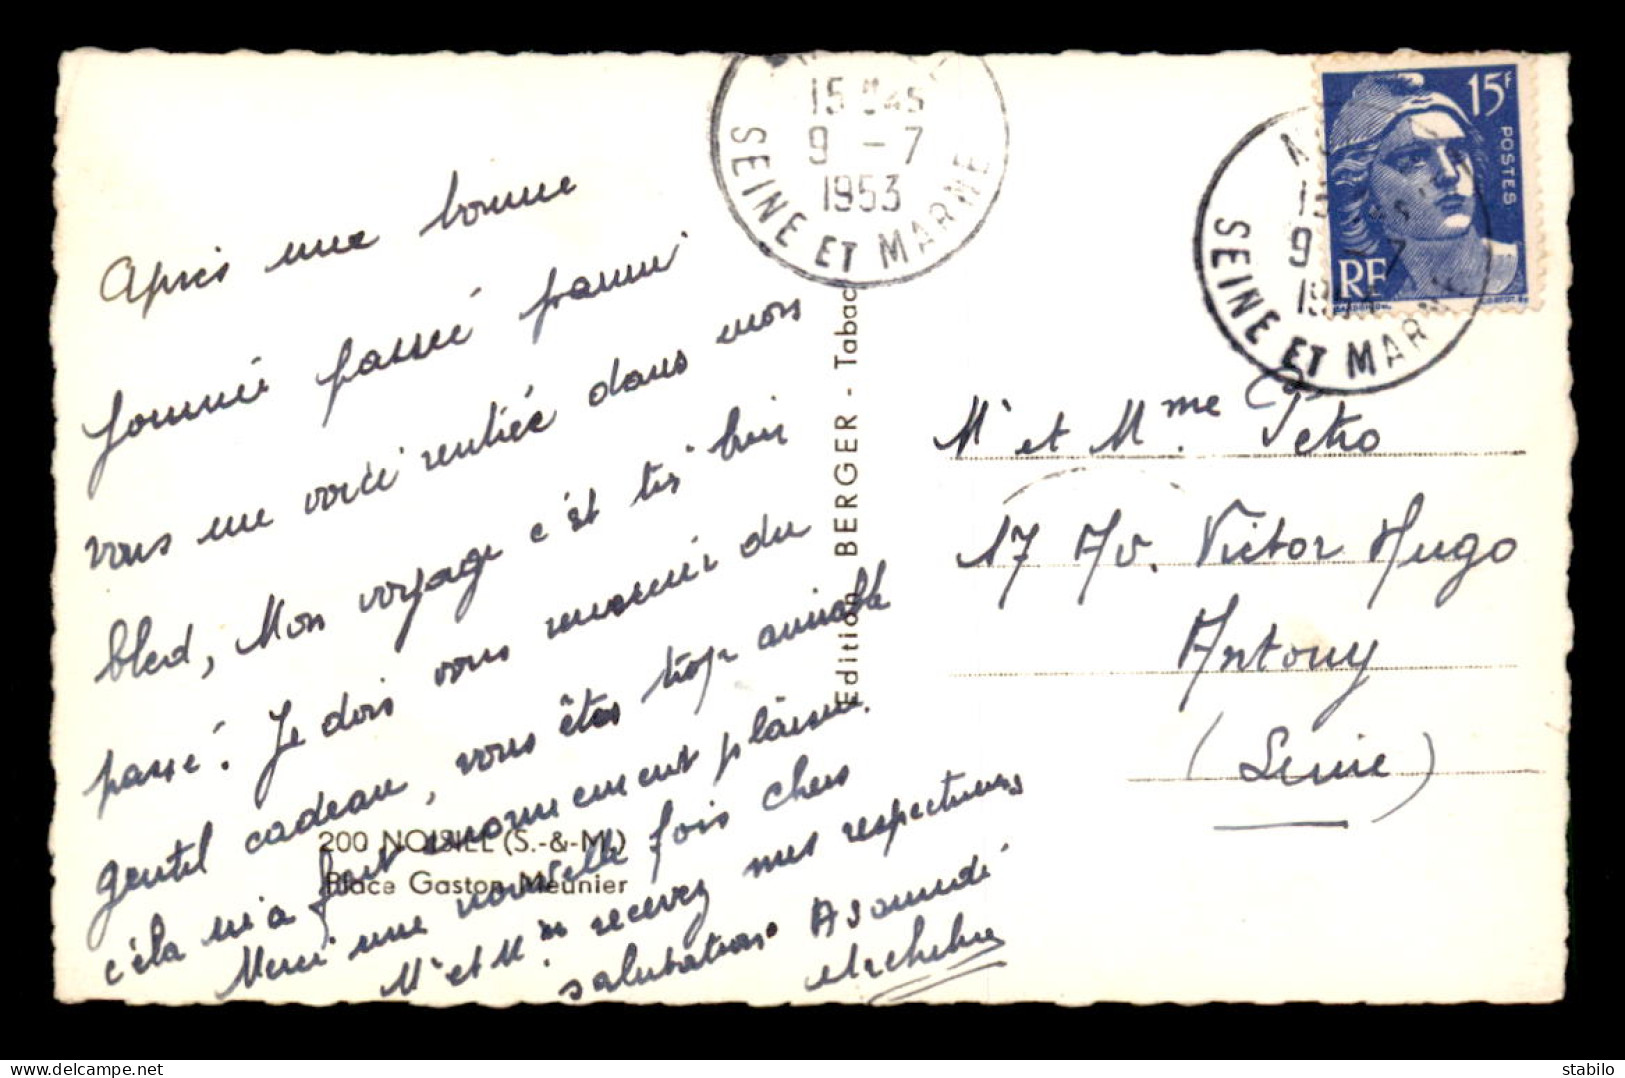 15 H45
9 - 7
1953
SEINE ET MARNE
15F
POSTES
RF
9 - 7
SEINE ET MARNE
Après une bonne
journée passée parmi
vous me voici rentrée dans mon
bled, Mon voyage c'est très bien
passé. Je dois vous remercier du
gentil cadeau, vous êtes trop aimable
céla m'a fait énormement plaisir.
Merci une nouvelle fois chers
Mr et Mme recevez mes respectueuses
salutations A Samedi
Edition BERGER - Tabac
200 NOISIEL (S.-&-M.)
Place Gaston Meunier
Mr et Mme. Petro
17 Av. Victor Hugo
Antony
(Seine)
delcampe.net
stabilo